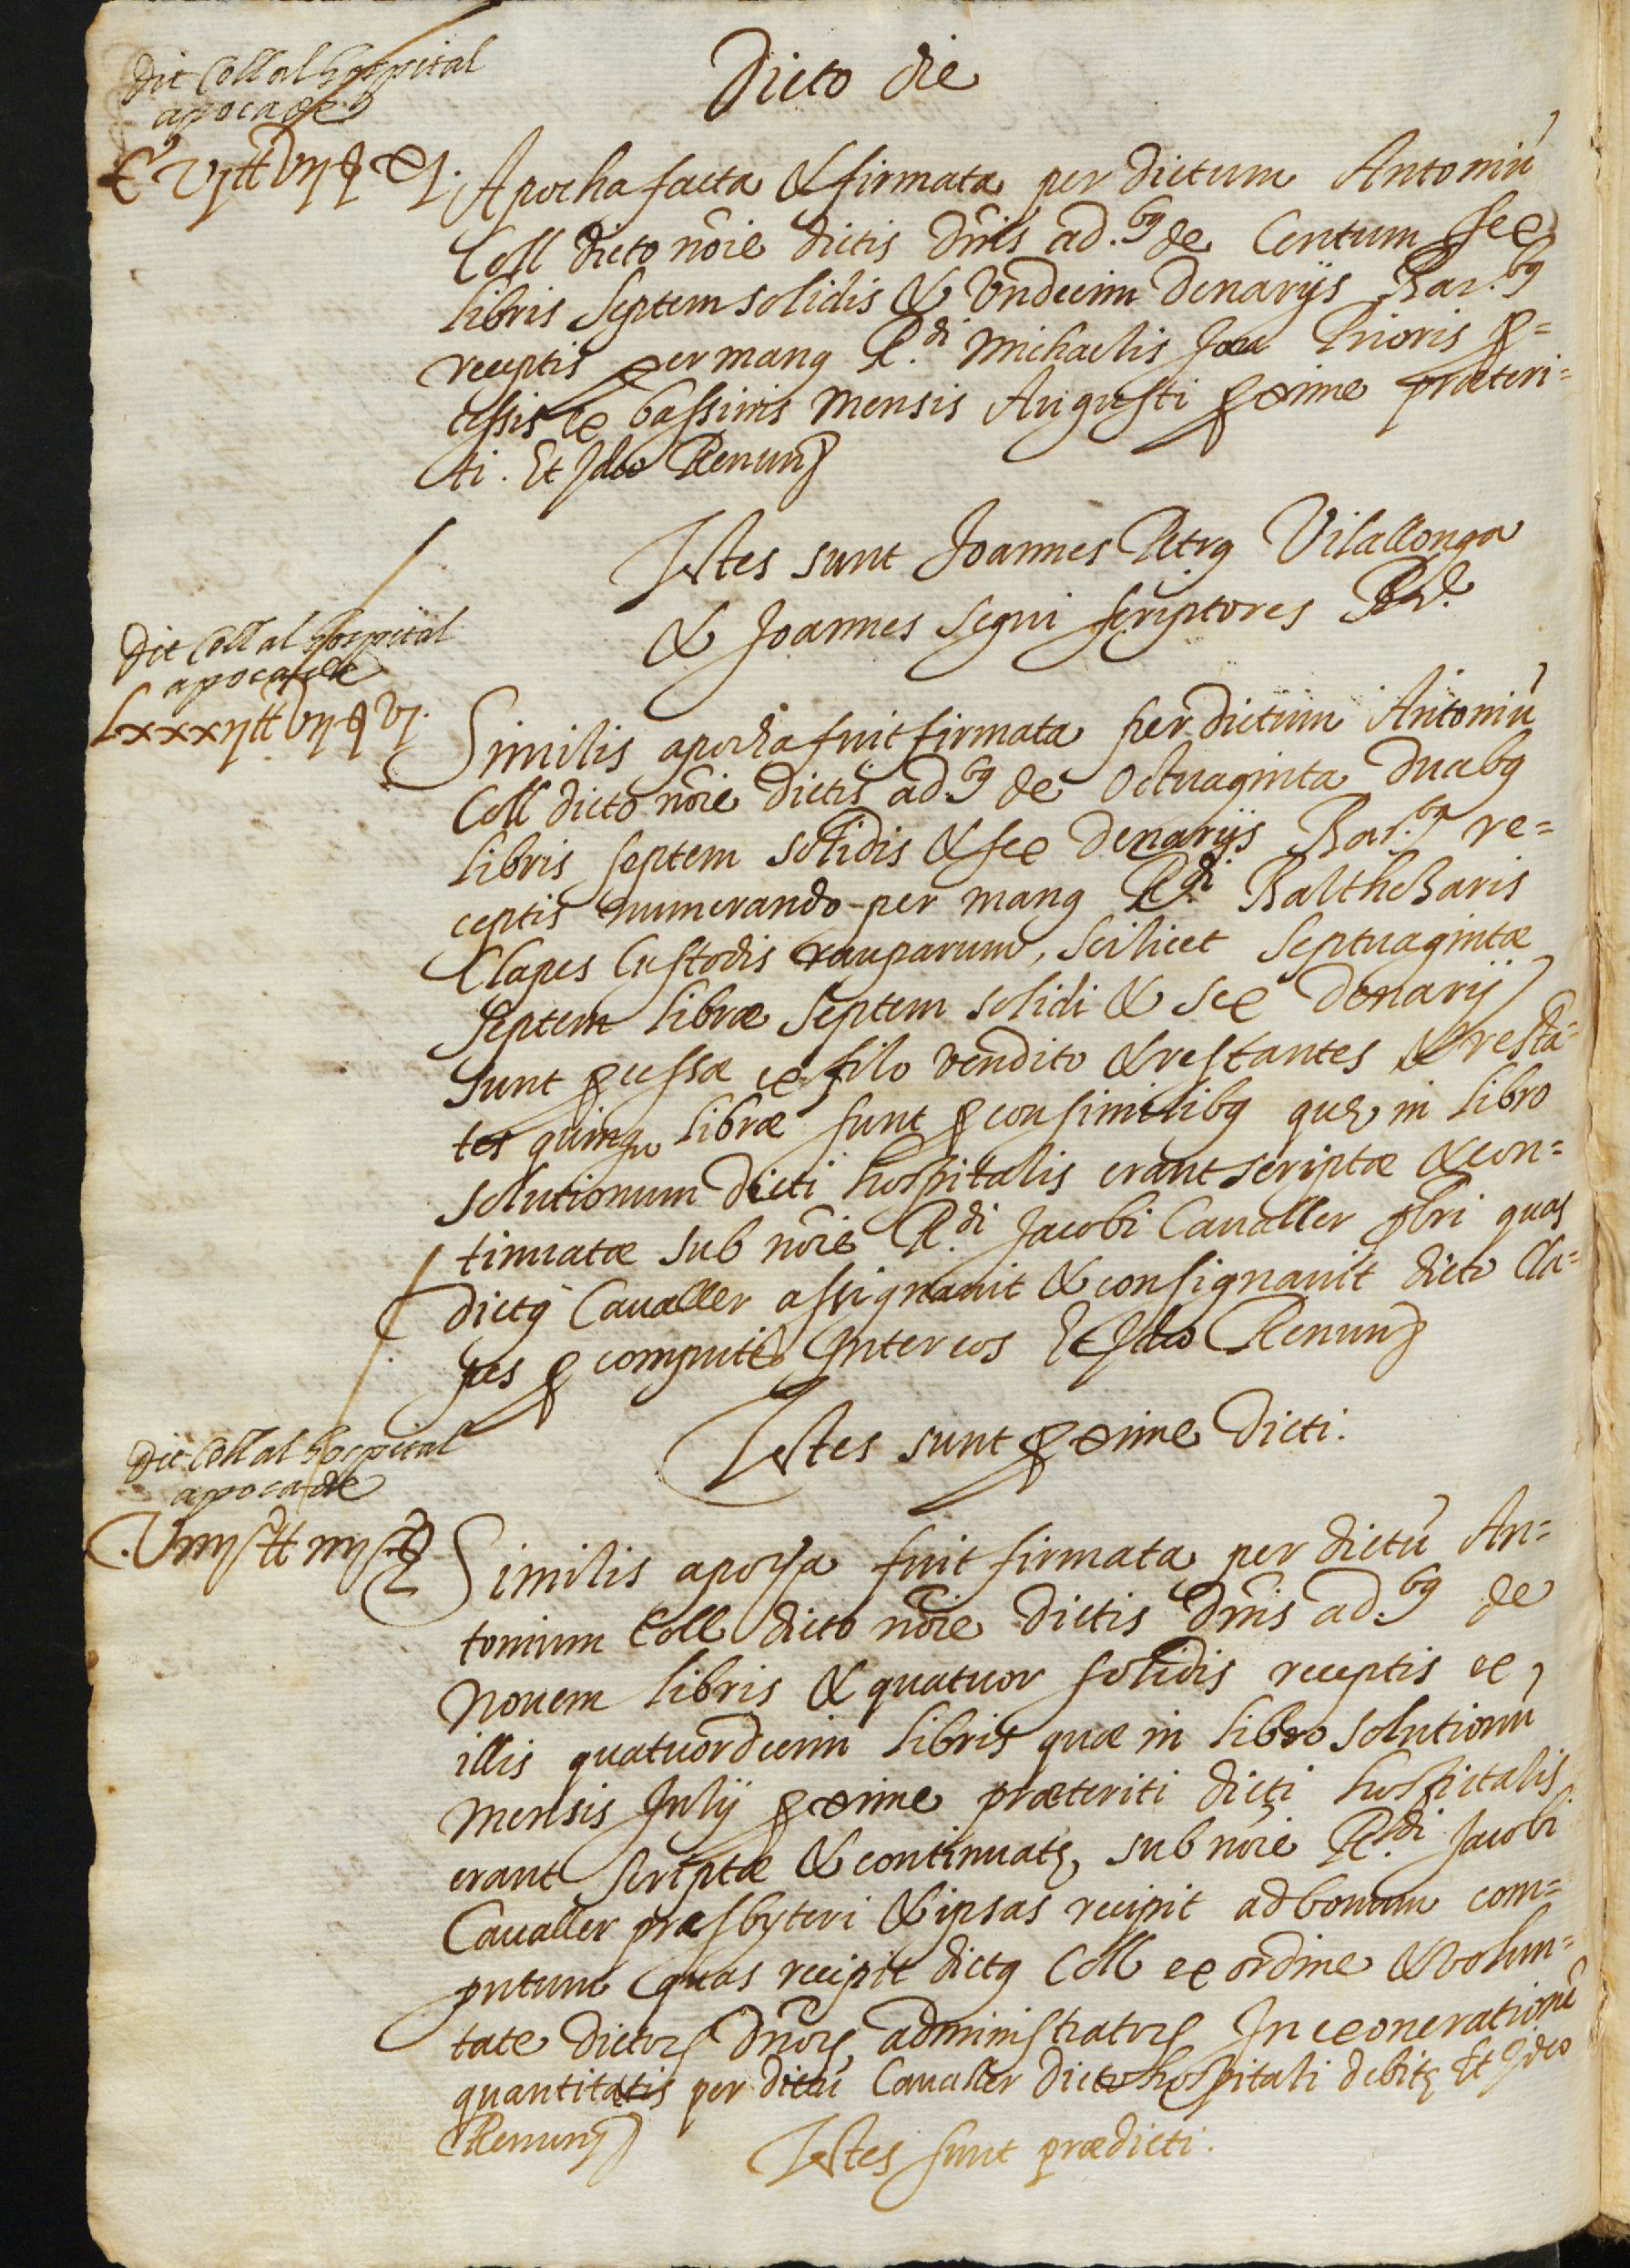 Dicto die
Dit Coll al hospital
apoca de
C vj ₶ vij ß xj.
Apocha facta & firmata per dictum Antoniũ
Coll dicto nõie dictis dñis ad.bꝯ de Centum sex
libris septem solidis & Undecim denarijs Bar.bꝯ
receptis per manꝯ R.di Michaelis Joã Prioris ꝓ=
cessis ex bassinis mensis Augusti ꝓxime præteri=
ti. Et Ideo Renunꝫ
Testes sunt Joannes Petrꝯ Vilallonga
& Joannes Segui scriptores Bar.e
Dit Coll al hospital
apoca de
Lxxxij ₶ vij ß vj.
Similis apocha fuit firmata per dictum Antoniũ
Coll dicto nõie dictis ad.bꝯ de Octuaginta duabꝯ
libris septem solidis & sex denarijs Bar.bꝯ re=
ceptis numerando per manꝯ R.di Balthezaris
Clapes Custodis rauparum, scilicet septuagintæ
septem libræ septem solidi & sex denarij
sunt ꝓcessæ ex filo vendito & restantes & restã=
tes quinqꝫ libræ sunt ꝓ consimilibꝯ quę in libro
solutionum dicti hospitalis erant scriptæ & con=
tinuatæ sub nõie R.di Jacobi Cavaller pbri quas
dictꝯ Cavaller assignavit & consignavit dicto Cla=
pes ꝓ computis Inter eos Et Ideo Renunꝫ
Testes sunt ꝓxime dicti.
Dit Coll al hospital
apoca de
Viiij ₶ iiij ß
Similis apocha fuit firmata per dictũ An=
tonium Coll dicto nõie dictis dñis ad.bꝯ de
Novem libris & quatuor solidis receptis ex
illis quatuordecim libris quæ in libro solutionũ
mensis Julij ꝓxime præteriti dicti hospitalis
erant scriptæ & continuatę, sub nõie R.di Jacobi
Cavaller præsbyteri & ipsas recipit ad bonum com=
putum quas recipit dictꝯ Coll ex ordine & volun=
tate dictorꝝ dñorꝝ administratorꝝ In exonerationẽ
quantitatis per dictũ Cavaller dicto hospitali debitę Et Ideo
Renunꝫ
Testes sunt prædicti.